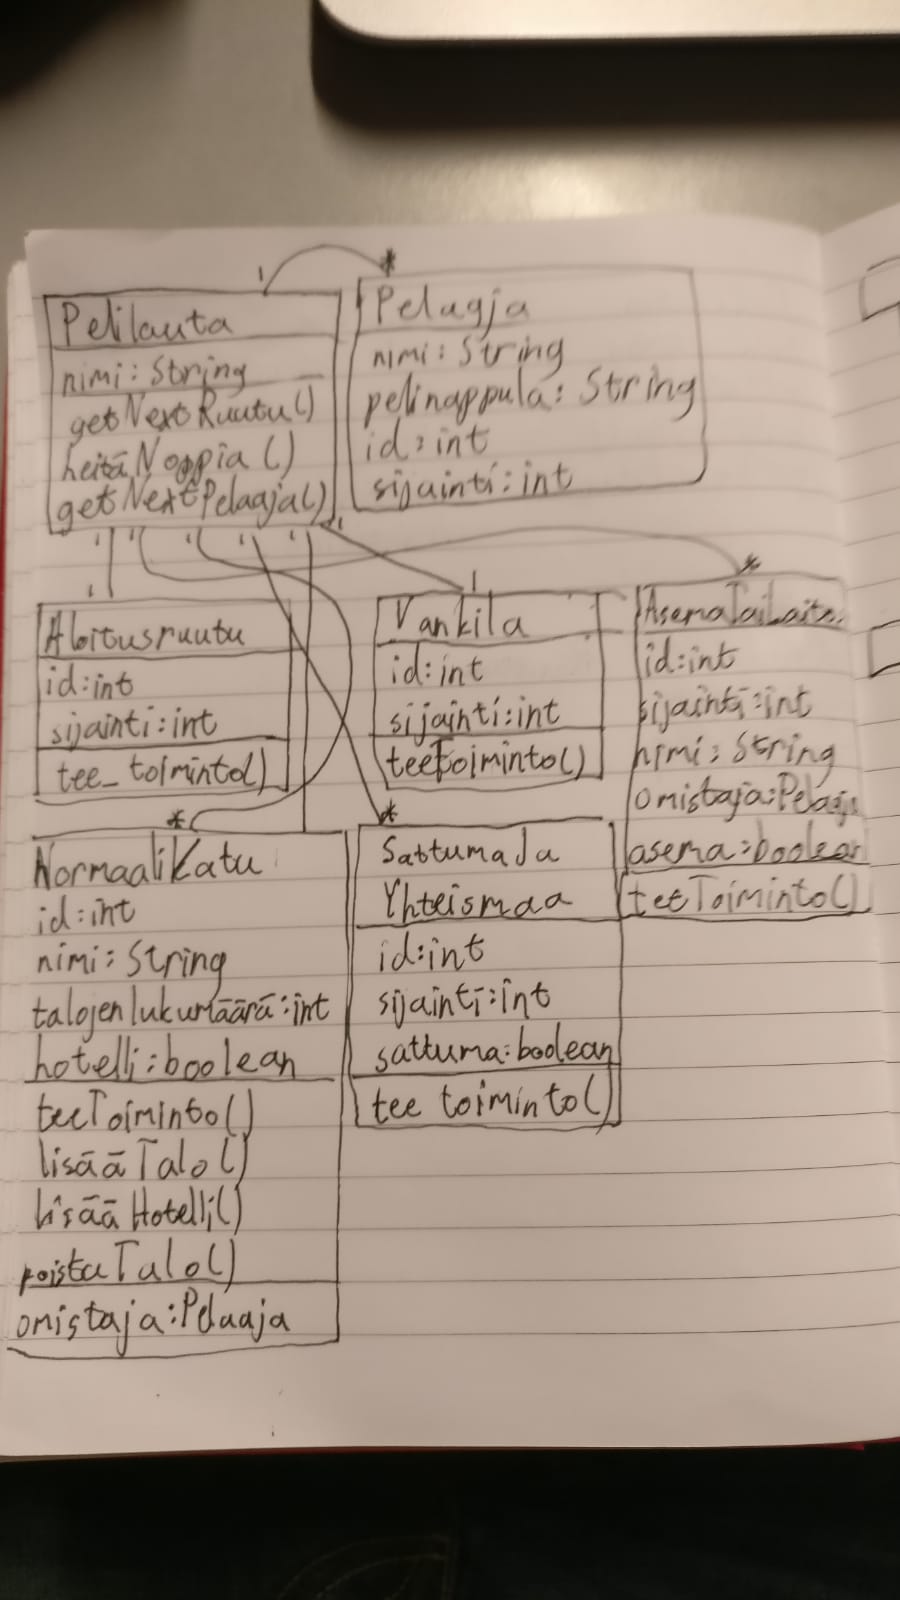 1 *
Pelilauta
nimi: String
getNextRuutu()
heitäNoppia()
getNextPelaaja()
Pelaaja
nimi: String
pelinappula: String
id: int
sijainti: int
1 1 1 1 1 1
1
Aloitusruutu
id: int
sijainti: int
tee_toiminto()
1
Vankila
id: int
sijainti: int
teeToiminto()
*
AsemaTaiLaitos
id: int
sijainti: int
nimi: String
omistaja: Pelaaja
asema: boolean
teeToiminto()
*
NormaaliKatu
id: int
nimi: String
talojenlukumäärä: int
hotelli: boolean
teeToiminto()
lisääTalo()
lisääHotelli()
poistaTalo()
omistaja: Pelaaja
*
SattumaJa
Yhteismaa
id: int
sijainti: int
sattuma: boolean
tee toiminto()